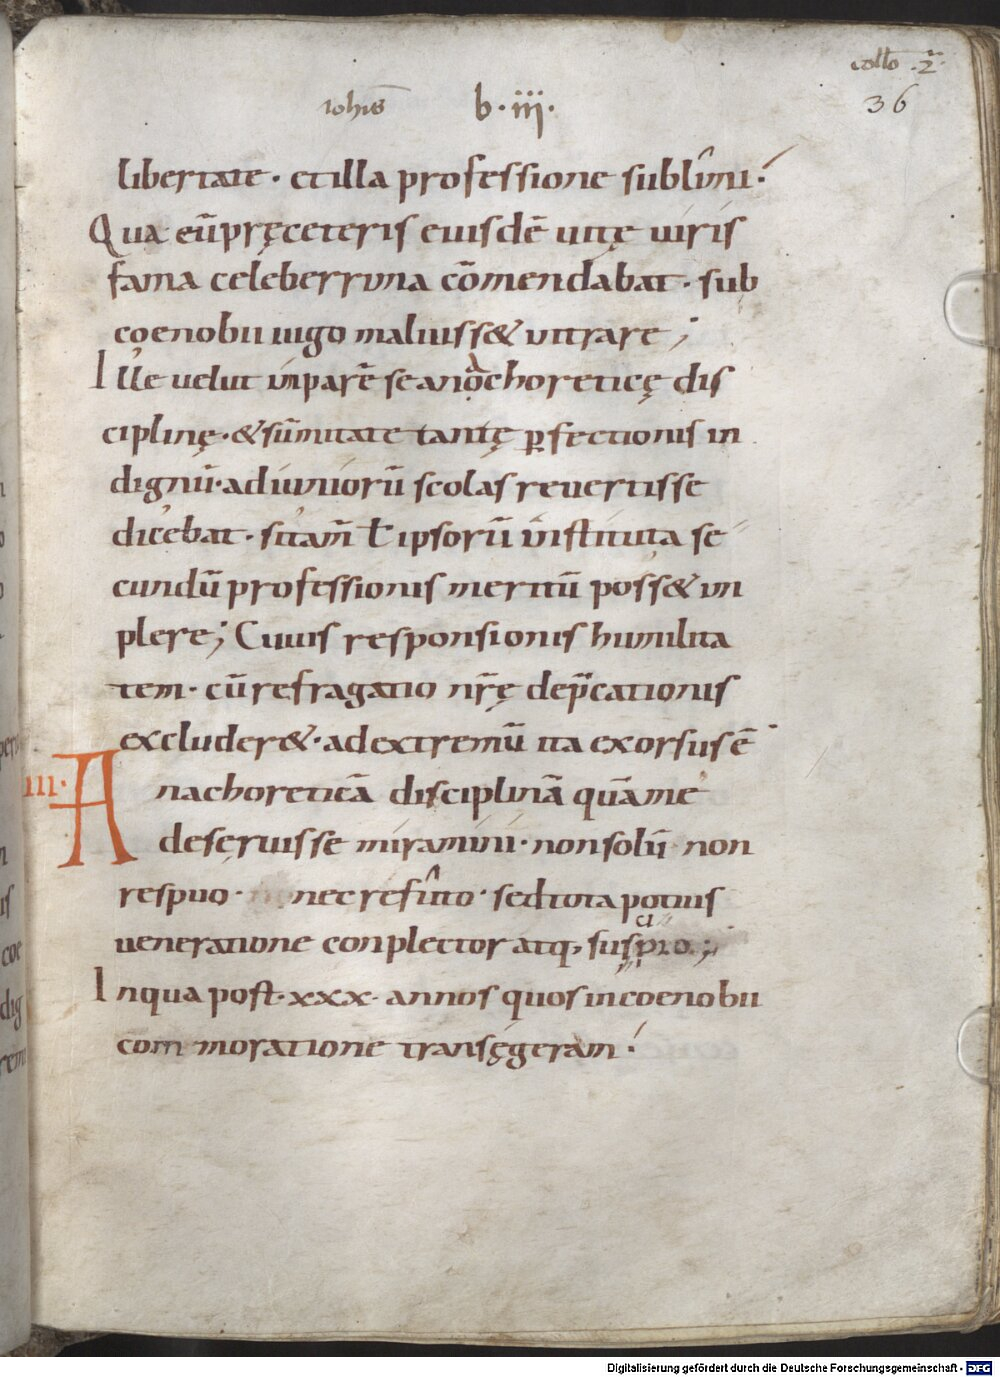 collō .2ª.
36
iohis̄ b.iii.
libertate · et illa professione sublimi·
Qua eū pręceteris eiusdē uitę uiris
fama celeberrima cōmendabat · sub
coenobii iugo maluiss& intrare ;
Ille uelut inparē se anachoreticę dis
ciplinę · & sūmitate tantę ꝑfectionis in
dignū · ad iuniorū scolas reuertisse
dicebat · si tam̄ ł ipsorū instituta se
cundū professionis meritū poss& im
plere ; Cuius responsionis humilita
tem · cū refragatio nr̄ę dep̄cationis
excluder& · ad extremū ita exorsus ē
III· Anachoreticā disciplinā quāme
deseruisse miramini · non solū non
respuo · nec refuto · sed tota potius
ueneratione conplector atq; suspicio ;
In qua post · xxx · annos quos in coenobii
com moratione transęgeram ·
Digitalisierung gefördert durch die Deutsche Forschungsgemeinschaft - DFG